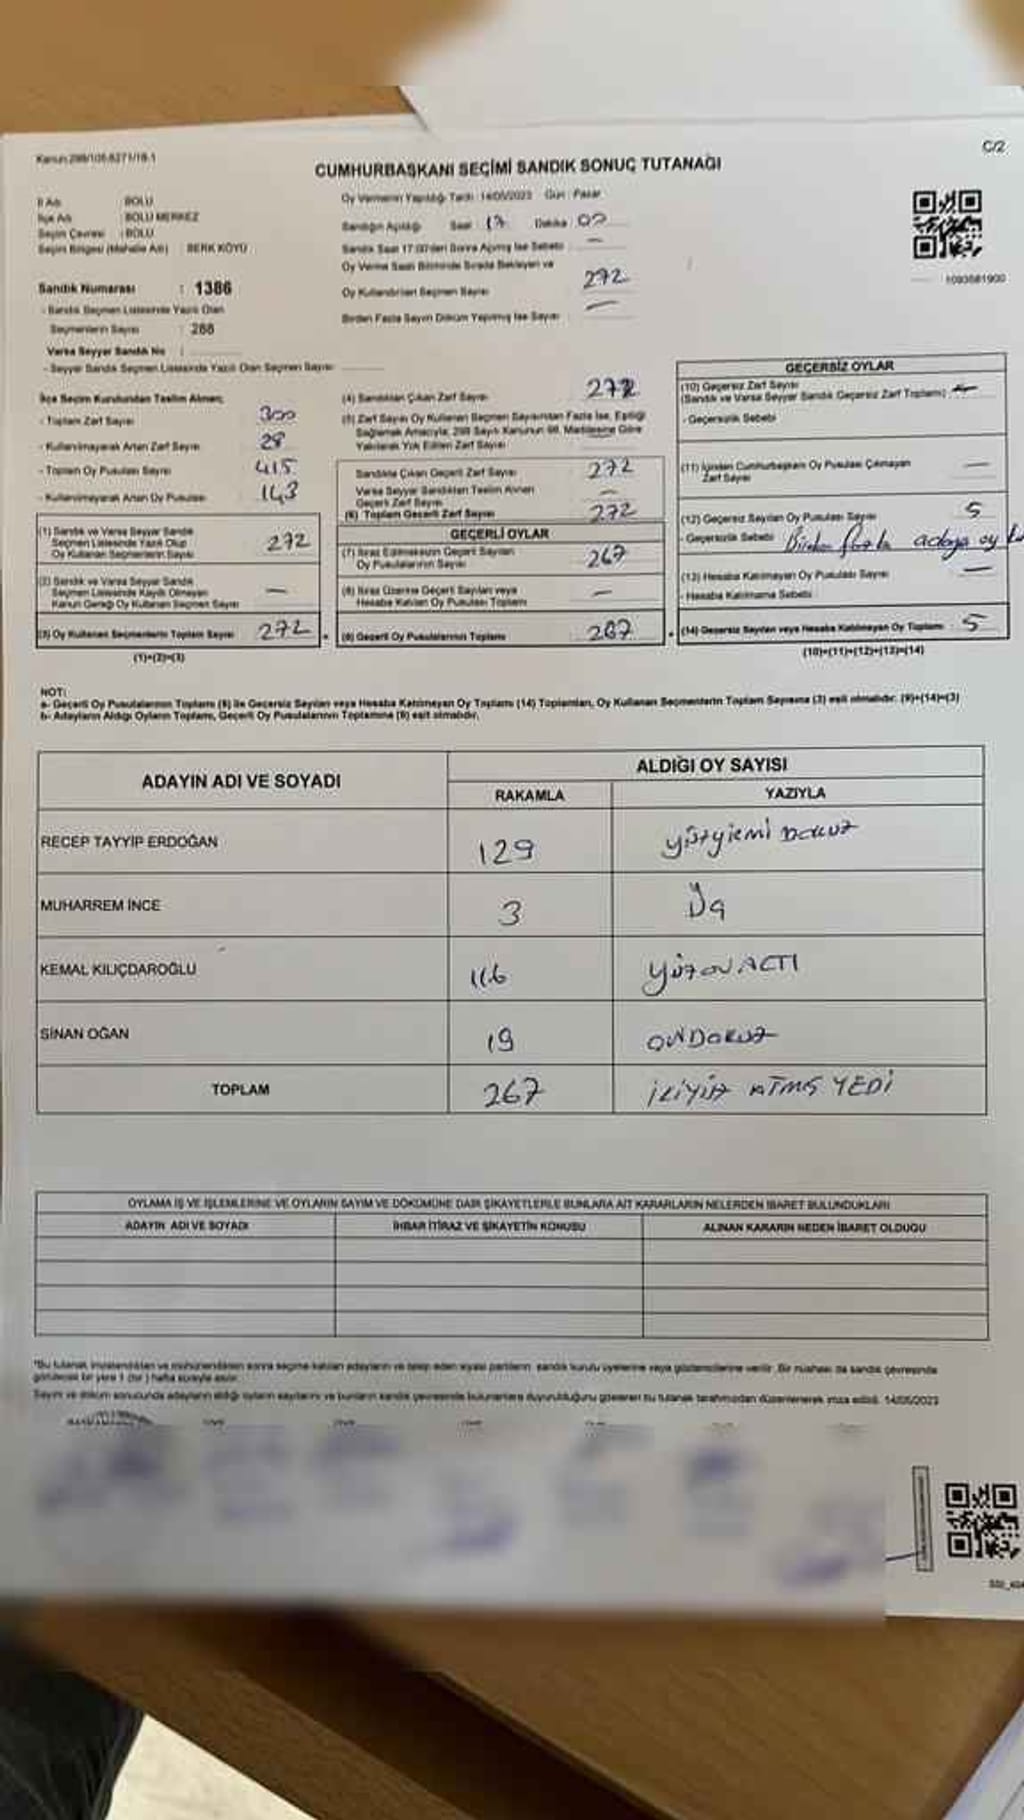 Kanun:298/105.6271/18.1
C/2
CUMHURBAŞKANI SEÇİMİ SANDIK SONUÇ TUTANAĞI
İl Adı : BOLU
İlçe Adı : BOLU MERKEZ
Seçim Çevresi : BOLU
Seçim Bölgesi (Mahalle Adı) : BERK KÖYÜ
Sandık Numarası : 1386
- Sandık Seçmen Listesinde Yazılı Olan
Seçmenlerin Sayısı : 288
Varsa Seyyar Sandık No :
- Seyyar Sandık Seçmen Listesinde Yazılı Olan Seçmen Sayısı
Oy Vermenin Yapıldığı Tarih: 14/05/2023 Gün : Pazar
Sandığın Açıldığı Saat : 17 Dakika : 00
Sandık Saat 17:00'den Sonra Açılmış İse Sebebi : —
Oy Verme Saati Bitiminde Sırada Bekleyen ve
Oy Kullandırılan Seçmen Sayısı 272
Birden Fazla Sayım Döküm Yapılmış İse Sayısı : —
1093581900
İlçe Seçim Kurulundan Teslim Alınan;
- Toplam Zarf Sayısı 300
- Kullanılmayarak Artan Zarf Sayısı 28
- Toplam Oy Pusulası Sayısı 415
- Kullanılmayarak Artan Oy Pusulası 143
(1) Sandık ve Varsa Seyyar Sandık
Seçmen Listesinde Yazılı Olup
Oy Kullanan Seçmenlerin Sayısı 272
(2) Sandık ve Varsa Seyyar Sandık
Seçmen Listesinde Kayıtlı Olmayan
Kanun Gereği Oy Kullanan Seçmen Sayısı —
(3) Oy Kullanan Seçmenlerin Toplam Sayısı 272
(1)+(2)=(3)
(4) Sandıktan Çıkan Zarf Sayısı 272
(5) Zarf Sayısı Oy Kullanan Seçmen Sayısından Fazla İse, Eşitliği
Sağlamak Amacıyla; 298 Sayılı Kanunun 98. Maddesine Göre
Yakılarak Yok Edilen Zarf Sayısı
Sandıkta Çıkan Geçerli Zarf Sayısı 272
Varsa Seyyar Sandıktan Teslim Alınan
Geçerli Zarf Sayısı —
(6) Toplam Geçerli Zarf Sayısı 272
GEÇERLİ OYLAR
(7) İtiraz Edilmeksizin Geçerli Sayılan
Oy Pusulalarının Sayısı 267
(8) İtiraz Üzerine Geçerli Sayılan veya
Hesaba Katılan Oy Pusulası Toplamı —
(9) Geçerli Oy Pusulalarının Toplamı 267
GEÇERSİZ OYLAR
(10) Geçersiz Zarf Sayısı
(Sandık ve Varsa Seyyar Sandık Geçersiz Zarf Toplamı) —
- Geçersizlik Sebebi
(11) İçinden Cumhurbaşkanı Oy Pusulası Çıkmayan
Zarf Sayısı —
(12) Geçersiz Sayılan Oy Pusulası Sayısı 5
- Geçersizlik Sebebi Birden fazla adaya oy
(13) Hesaba Katılmayan Oy Pusulası Sayısı —
- Hesaba Katılmama Sebebi
(14) Geçersiz Sayılan veya Hesaba Katılmayan Oy Toplamı 5
(10)+(11)+(12)+(13)=(14)
NOT:
a- Geçerli Oy Pusulalarının Toplamı (9) ile Geçersiz Sayılan veya Hesaba Katılmayan Oy Toplamı (14) Toplamları, Oy Kullanan Seçmenlerin Toplam Sayısına (3) eşit olmalıdır. (9)+(14)=(3)
b- Adayların Aldığı Oyların Toplamı, Geçerli Oy Pusulalarının Toplamına (9) eşit olmalıdır.
ADAYIN ADI VE SOYADI ALDIĞI OY SAYISI
RAKAMLA YAZIYLA
RECEP TAYYİP ERDOĞAN 129 yüzyiemi DOKUZ
MUHARREM İNCE 3 Üç
KEMAL KILIÇDAROĞLU 116 YÜZONALTI
SİNAN OĞAN 19 ONDOKUZ
TOPLAM 267 İKİYÜZ ATMŞ YEDİ
OYLAMA İŞ VE İŞLEMLERİNE VE OYLARIN SAYIM VE DÖKÜMÜNE DAİR ŞİKAYETLERLE BUNLARA AİT KARARLARIN NELERDEN İBARET BULUNDUKLARI
ADAYIN ADI VE SOYADI İHBAR İTİRAZ VE ŞİKAYETİN KONUSU ALINAN KARARIN NEDEN İBARET OLDUĞU
*Bu tutanak imzalandıktan ve mühürlendikten sonra seçime katılan adayların ve talep eden siyasi partilerin sandık kurulu üyelerine veya gözlemcilerine verilir. Bir nüshası da sandık çevresinde
görülecek bir yere 1 (bir) hafta süreyle asılır.
Sayım ve döküm sonucunda adayların aldığı oyların sayılarını ve bunların sandık çevresinde bulunanlara duyurulduğunu gösteren bu tutanak tarafımızdan düzenlenerek imza edildi. 14/05/2023